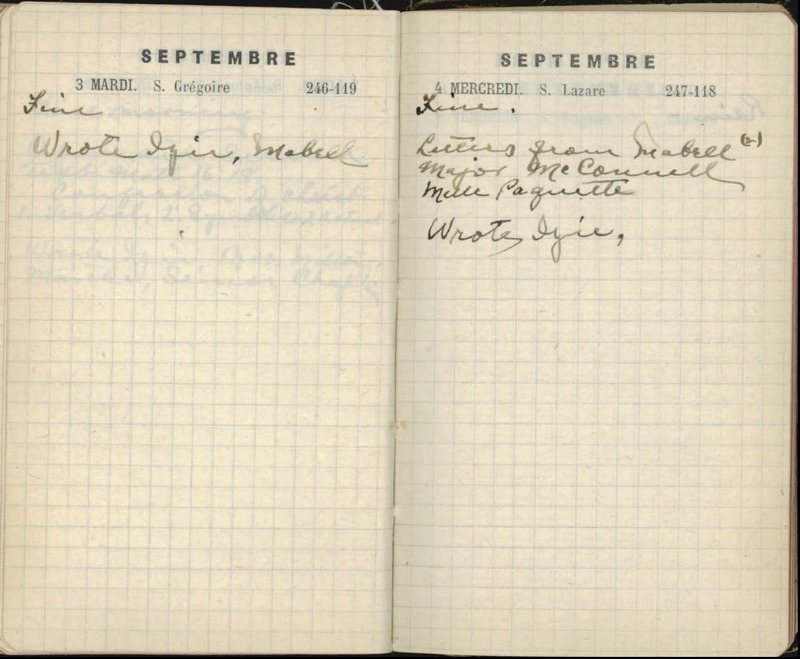 SEPTEMBRE
3 MARDI. S. Grégoire 246-119
Fine
Wrote Izie, Mabell
SEPTEMBRE
4 MERCREDI. S. Lazare 247-118
Fine.
Letters from Mabell (2)
Major McConnell
Mlle Paquette
Wrote Izie,